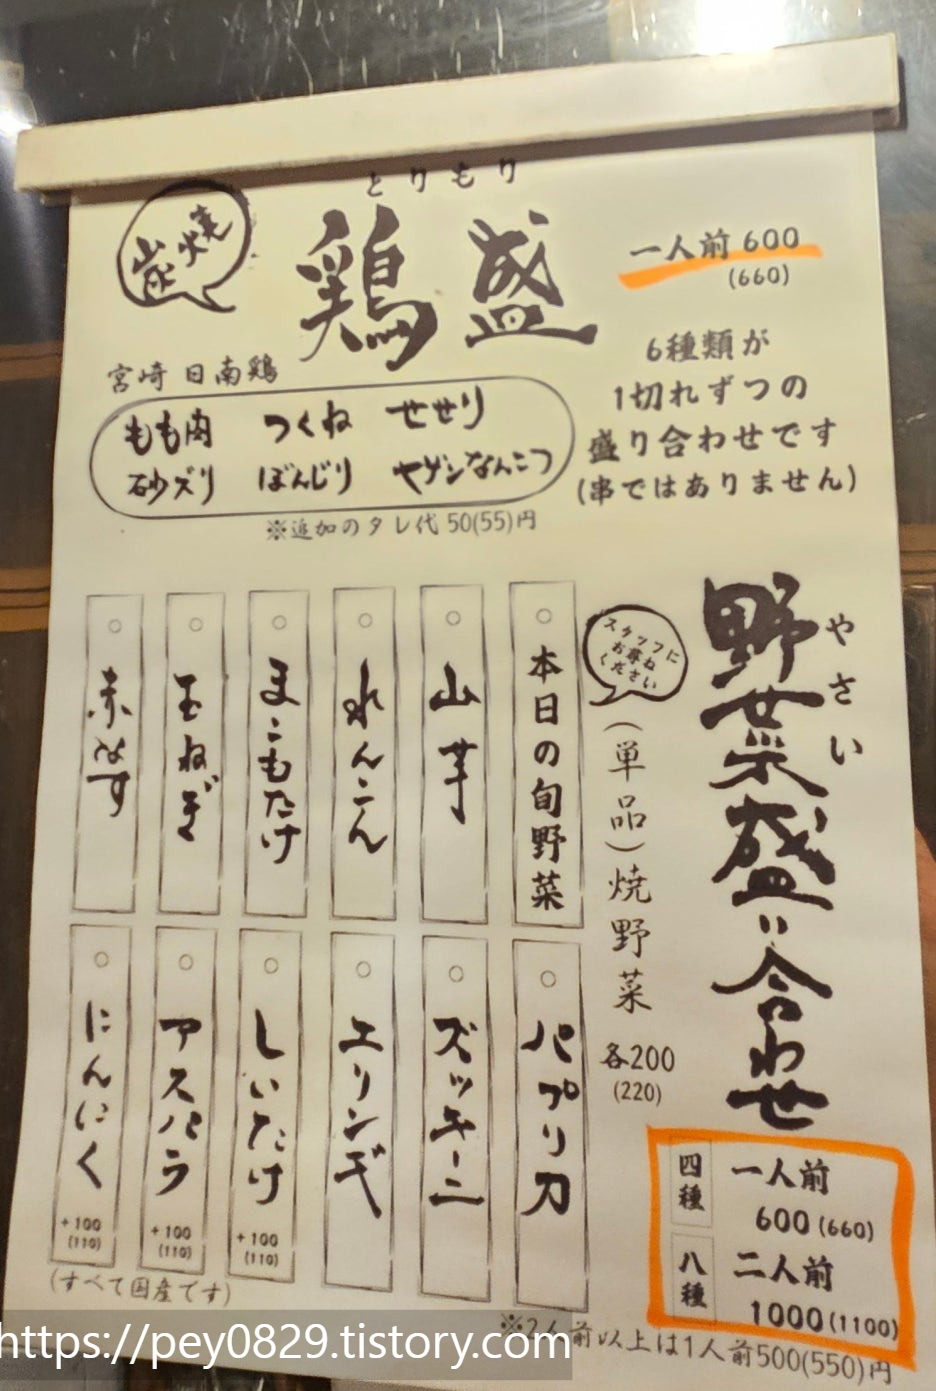 とりもり
炭焼
鶏盛
一人前 600
(660)
宮崎 日南鶏
もも肉 つくね せせり
砂ズリ ぼんじり ヤゲンなんこつ
※追加のタレ代 50(55)円
6種類が
1切れずつの
盛り合わせです
(串ではありません)
やさい
野菜盛り合わせ
四種
一人前
600(660)
八種
二人前
1000(1100)
※2人前以上は1人前500(550)円
スタッフに
お尋ね
ください
(単品)焼野菜
各200
(220)
本日の旬野菜
山芋
れんこん
まこもたけ
玉ねぎ
赤なす
パプリカ
ズッキーニ
エリンギ
しいたけ
+100
(110)
アスパラ
+100
(110)
にんにく
+100
(110)
(すべて国産です)
https://pey0829.tistory.com